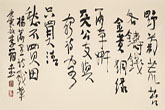 野菊荒苔
各铸钱
金黄铜绿
两争妍
天公支与
穷诗客
只买清
愁不买田
杨万里诗戏笔